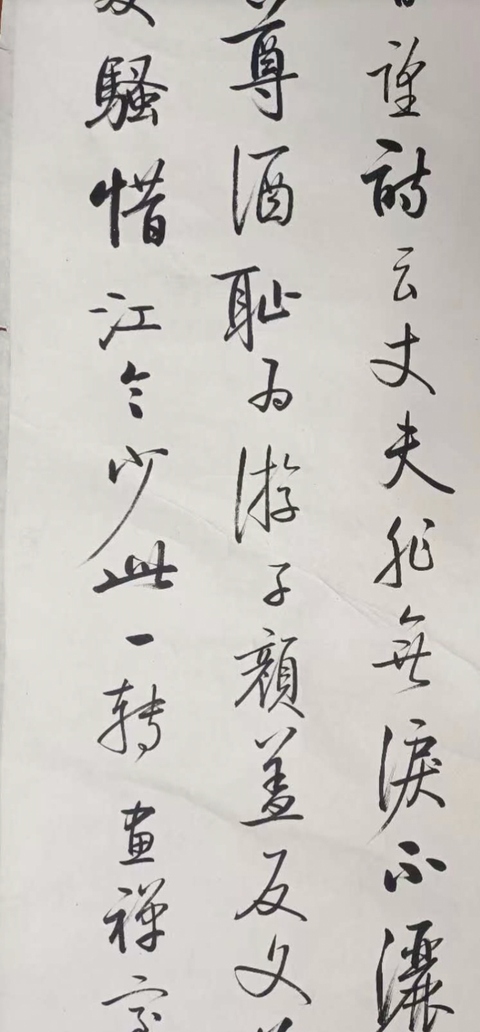 詩云丈夫非無淚不灑
尊酒恥為游子顏蓋反文
騷惜江令少此一轉畫禪室